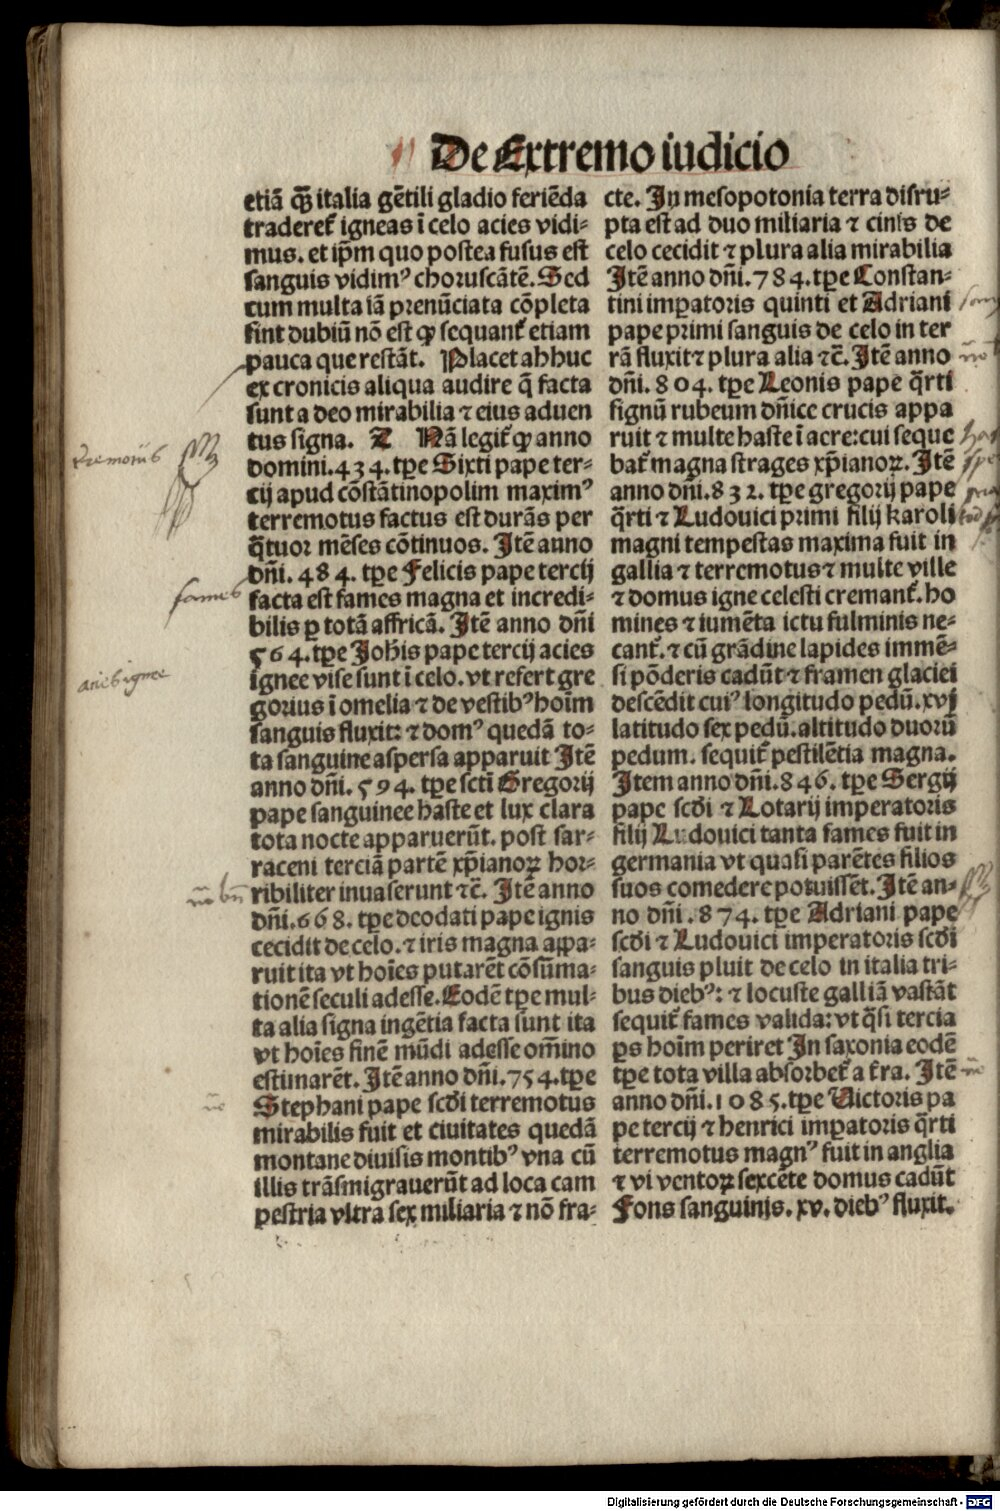 De Extremo iudicio
etiã qȝ̃ italia gẽtili gladio feriẽda
traderet᷑ igneas ĩ celo acies vidi-
mus. et ip̃m quo postea fusus est
sanguis vidimꝰ choruscãtẽ. Sed
cum multa iã prenũciata cõpleta
sint dubiũ nõ est ꝙ sequant᷑ etiam
pauca que restãt. Placet adhuc
ex cronicis aliqua audire q̃ facta
sunt a deo mirabilia ⁊ eius aduen
tus signa. T Nã legit᷑ ꝙ anno
domini.434.tꝑe Sixti pape ter-
cij apud cõstãtinopolim maximꝰ
terremotus factus est durãs per
q̃tuor mẽses cõtinuos. Itẽ anno
dñi.484. tꝑe Felicis pape tercij
facta est fames magna et incredi-
bilis ꝑ totã affricã. Itẽ anno dñi
564.tꝑe Joh̃is pape tercij acies
ignee vise sunt ĩ celo. vt refert gre
gorius ĩ omelia ⁊ de vestibꝰ hoĩm
sanguis fluxit: ⁊ domꝰ quedã to-
ta sanguine aspersa apparuit Itẽ
anno dñi. 594. tꝑe scti Gregorij
pape sanguinee haste et lux clara
tota nocte apparuerũt. post sar-
raceni terciã partẽ xp̃ianoꝝ hor-
ribiliter inuaserunt ⁊c̃. Itẽ anno
dñi.668. tꝑe deodati pape ignis
cecidit de celo. ⁊ iris magna aꝑpa-
ruit ita vt hoĩes putarẽt cõsũma-
tionẽ seculi adesse. Eodẽ tꝑe mul-
ta alia signa ingẽtia facta sunt ita
vt hoĩes finẽ mũdi adesse om̃ino
estimarẽt. Itẽ anno dñi.754.tꝑe
Stephani pape scďi terremotus
mirabilis fuit et ciuitates quedã
montane diuisis montibꝰ vna cũ
illis trãsmigrauerũt ad loca cam
pestria vltra sex miliaria ⁊ nõ fra-
cte. In mesopotonia terra disru-
pta est ad duo miliaria ⁊ cinis de
celo cecidit ⁊ plura alia mirabilia
Itẽ anno dñi.784.tꝑe Constan-
tini imꝑatoris quinti et Adriani
pape primi sanguis de celo in ter
rã fluxit ⁊ plura alia ⁊c̃. Itẽ anno
dñi. 804. tꝑe Leonis pape q̃rti
signũ rubeum dñice crucis appa
ruit ⁊ multe haste ĩ aere: cui seque
bat᷑ magna strages xp̃ianoꝝ. Itẽ
anno dñi.832. tꝑe gregorij pape
q̃rti ⁊ Ludouici primi filij karoli
magni tempestas maxima fuit in
gallia ⁊ terremotus ⁊ multe ville
⁊ domus igne celesti cremant᷑. ho
mines ⁊ iumẽta ictu fulminis ne-
cant᷑. ⁊ cũ grãdine lapides immẽ-
si põderis cadũt ⁊ framen glaciei
descẽdit cuiꝰ longitudo pedũ.xvj
latitudo sex pedũ. altitudo duorũ
pedum. sequit᷑ pestilẽtia magna.
Item anno dñi.846. tꝑe Sergij
pape scďi ⁊ Lotarij imperatoris
filij Ludouici tanta fames fuit in
germania vt quasi parẽtes filios
suos comedere potuissẽt. Itẽ an-
no dñi.874. tꝑe Adriani pape
scďi ⁊ Ludouici imperatoris scďi
sanguis pluit de celo in italia tri-
bus diebꝰ: ⁊ locuste galliã vastãt
sequit᷑ fames valida: vt q̃si tercia
ꝑs hoĩm periret In saxonia eodẽ
tꝑe tota villa absorbet᷑ a t᷑ra. Itẽ
anno dñi.1085.tꝑe Victoris pa
pe tercij ⁊ henrici imꝑatoris q̃rti
terremotus magnꝰ fuit in anglia
⁊ vi ventoꝝ sexcẽte domus cadũt
Fons sanguinis. xv. diebꝰ fluxit.
fames
acies ignee
Digitalisierung gefördert durch die Deutsche Forschungsgemeinschaft - DFG